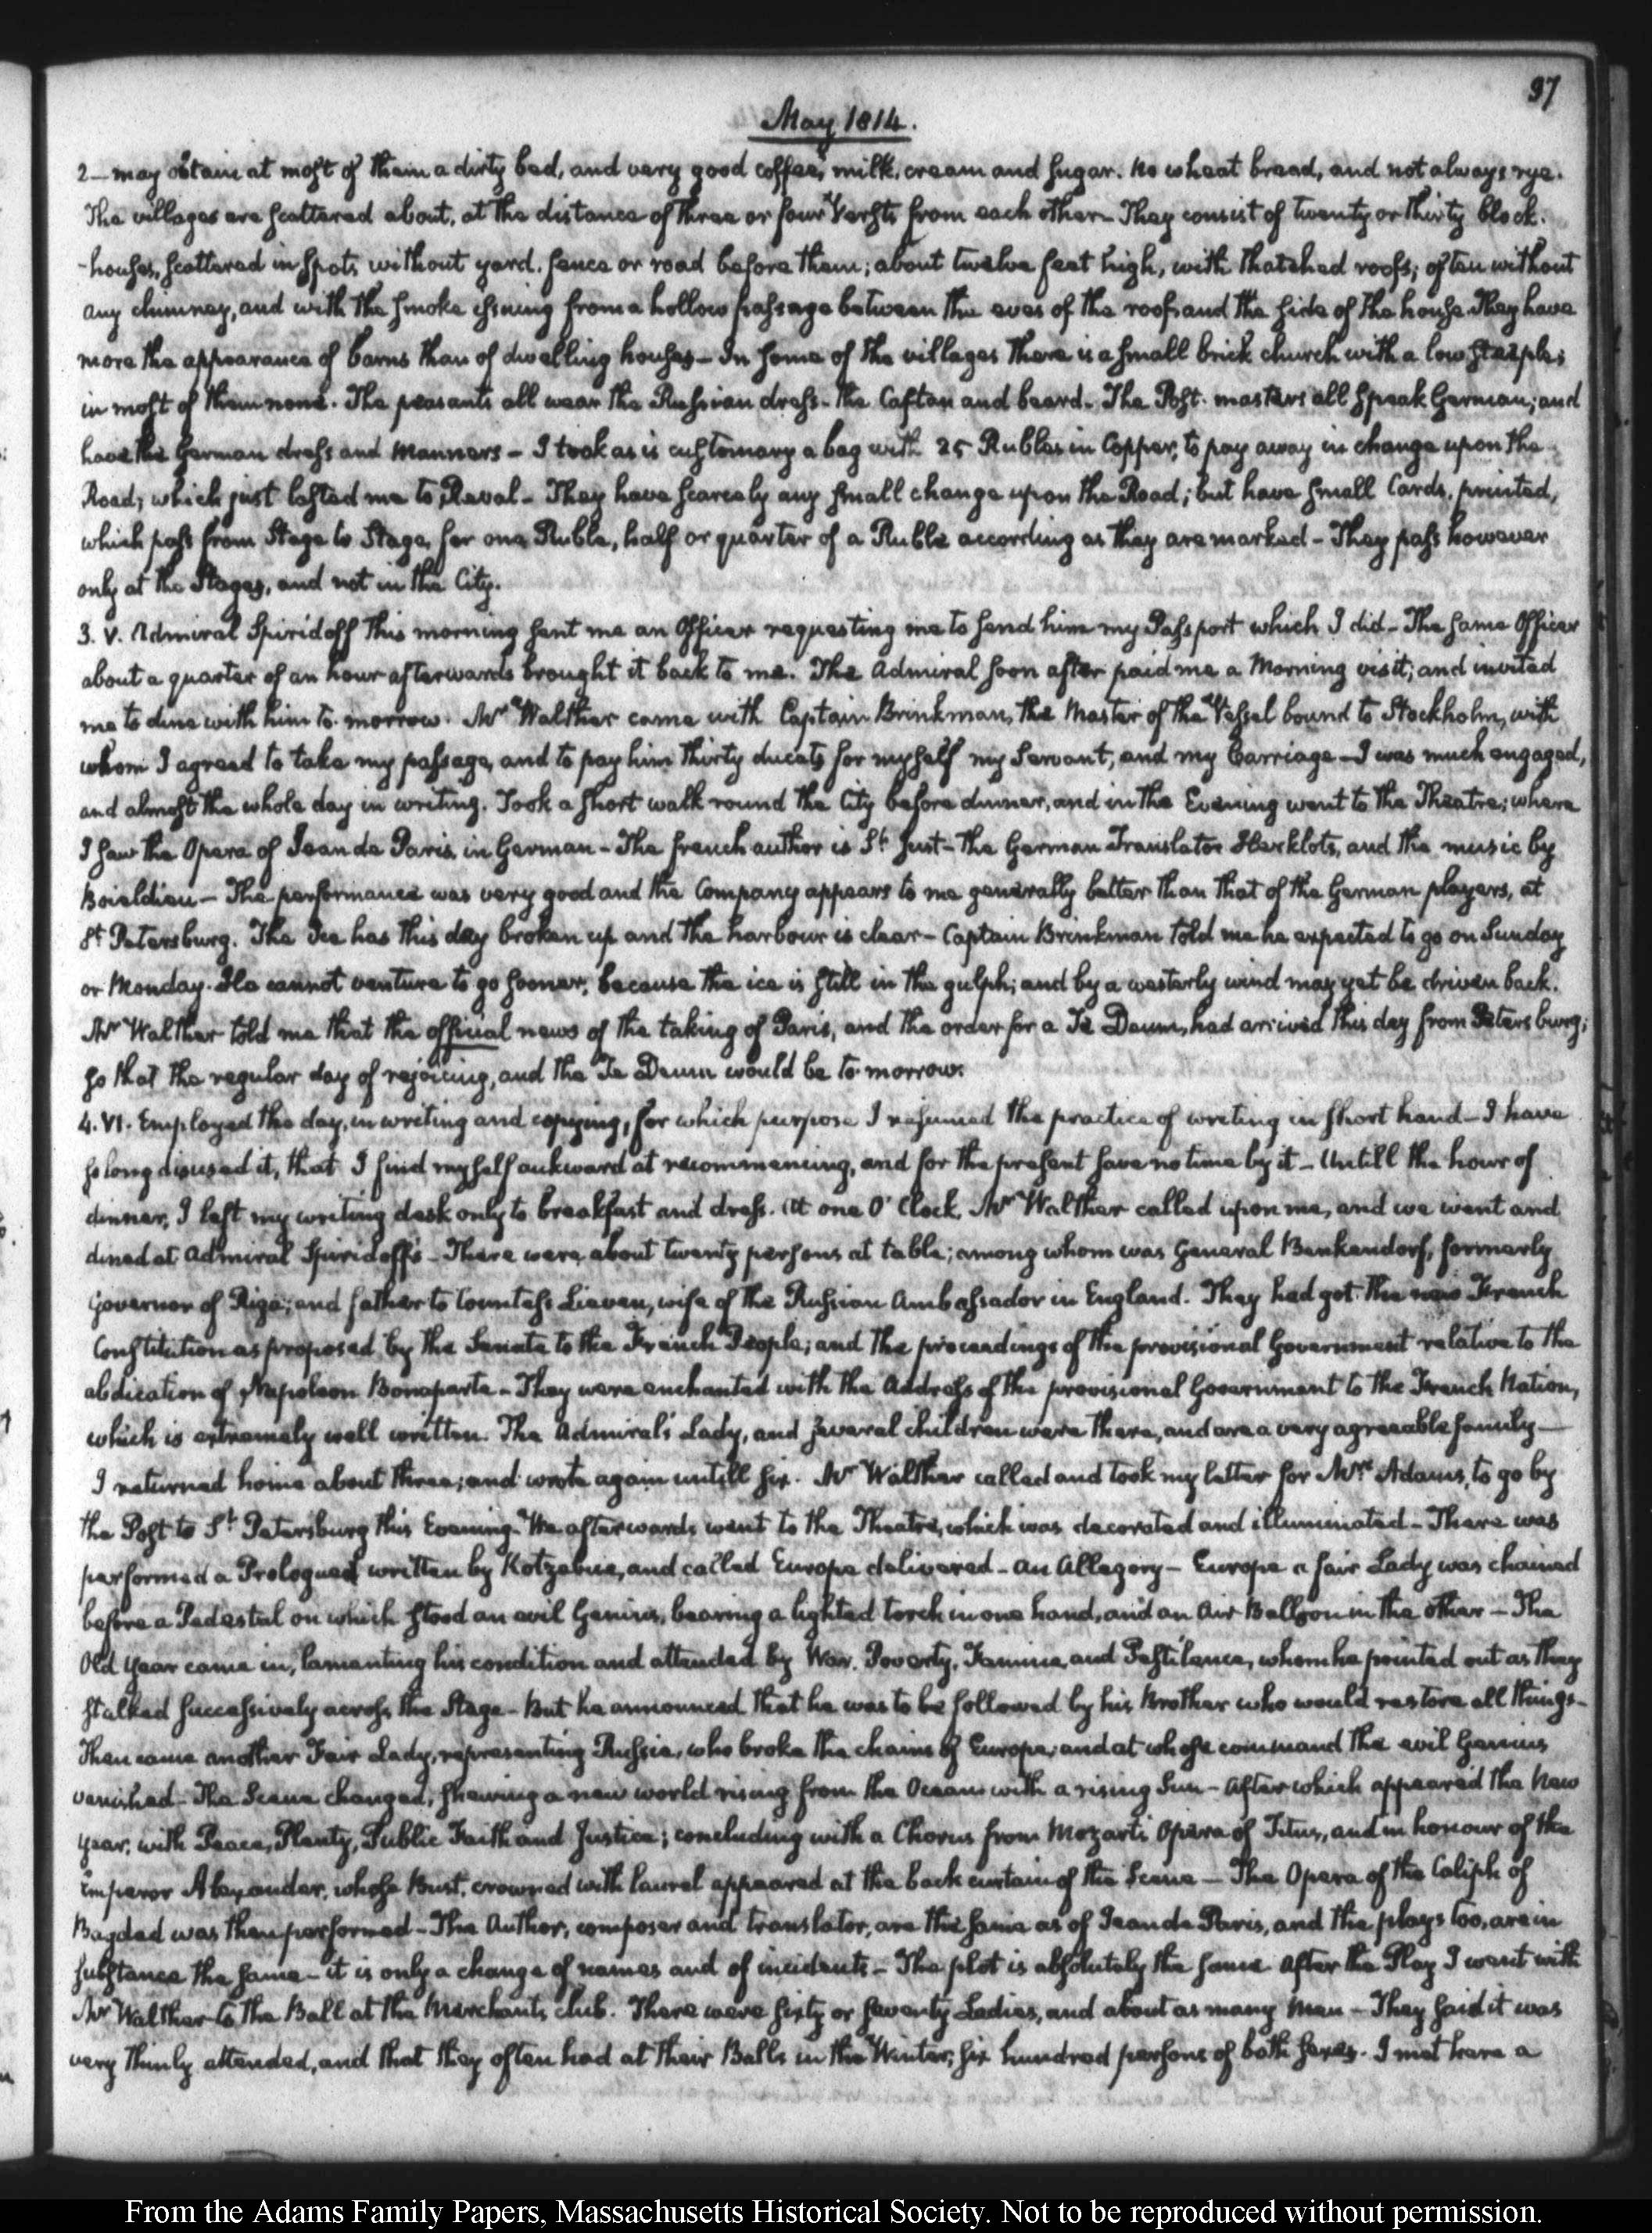 37
May 1814.
2 — may obtain at most of them a dirty bed, and very good coffee, milk, cream and sugar. No wheat bread, and not always rye.
The villages are scattered about, at the distance of three or four Versts from each other — They consist of twenty or thirty block-
-houses, scattered in spots without yard, fence or road before them; about twelve feet high, with thatched roofs; often without
any chimney, and with the smoke issuing from a hollow passage between the eves of the roof and the side of the house. They have
more the appearance of barns than of dwelling houses — In some of the villages there is a small brick church with a low steeple;
in most of them none. The peasants all wear the Russian dress — the Caftan and beard. The Post-masters all speak German; and
have the German dress and manners — I took as is customary a bag with 25 Rubles in Copper, to pay away in change upon the
Road; which just lasted me to Reval — They have scarcely any small change upon the Road; but have small Cards, printed,
which pass from Stage to Stage, for one Ruble, half or quarter of a Ruble according as they are marked — They pass however
only at the Stages, and not in the City.
3. V. Admiral Spiridoff this morning sent me an Officer requesting me to send him my Passport which I did — The same Officer
about a quarter of an hour afterwards brought it back to me. The Admiral soon after paid me a Morning visit; and invited
me to dine with him to-morrow. Mr Walther came with Captain Brinkman, the Master of the Vessel bound to Stockholm, with
whom I agreed to take my passage, and to pay him thirty ducats for myself my Servant, and my Carriage — I was much engaged,
and almost the whole day in writing. Took a short walk round the City before dinner, and in the Evening went to the Theatre; where
I saw the Opera of Jean de Paris, in German — The french author is St. Just — the German Translator Herklots, and the music by
Boieldieu — The performance was very good and the Company appears to me generally better than that of the German players, at
St. Petersburg. The Ice has this day broken up and the harbour is clear — Captain Brinkman told me he expected to go on Sunday
or Monday. He cannot venture to go sooner, because the ice is still in the gulph; and by a westerly wind may yet be driven back.
Mr Walther told me that the official news of the taking of Paris, and the order for a Te Deum, had arrived this day from Petersburg;
so that the regular day of rejoicing, and the Te Deum would be to-morrow.
4. VI. Employed the day, in writing and copying, for which purpose I resumed the practice of writing in short hand — I have
so long disused it, that I find myself aukward at recommencing, and for the present save no time by it — Untill the hour of
dinner, I left my writing desk only to breakfast and dress. At one O'Clock, Mr Walther called upon me, and we went and
dined at Admiral Spiridoff's — There were about twenty persons at table; among whom was General Benkendorf, formerly
Governor of Riga; and father to Countess Lieven, wife of the Russian Ambassador in England. They had got the new French
Constitution as proposed by the Senate to the French People; and the proceedings of the provisional Government relative to the
abdication of Napoleon Bonaparte — They were enchanted with the Address of the provisional Government to the French Nation,
which is extremely well written. The Admiral's Lady, and several children were there, and are a very agreeable family —
I returned home about three; and wrote again untill six. Mr Walther called and took my letter for Mrs Adams, to go by
the Post to St. Petersburg this Evening. We afterwards went to the Theatre, which was decorated and illuminated — There was
performed a Prologue written by Kotzebue, and called Europe delivered — an Allegory — Europe a fair Lady was chained
before a Pedestal on which stood an evil Genius, bearing a lighted torch in one hand, and an Air Balloon in the other — The
Old Year came in, lamenting his condition and attended by War, Poverty, Famine, and Pestilence, whom he pointed out as they
stalked successively across the Stage — But he announced that he was to be followed by his Brother who would restore all things —
Then came another Fair Lady, representing Russia, who broke the chains of Europe, and at whose command the evil Genius
vanished — The Scene changed, shewing a new world rising from the Ocean with a rising Sun — After which appeared the New
Year, with Peace, Plenty, Public Faith and Justice; concluding with a Chorus from Mozart's Opera of Titus, and in honour of the
Emperor Alexander, whose Bust, crowned with laurel appeared at the back curtain of the Scene — The Opera of the Caliph of
Bagdad was then performed — The Author, composer and translator, are the same as of Jean de Paris, and the plays too, are in
substance the same — it is only a change of names and of incidents — The plot is absolutely the same. After the Play I went with
Mr Walther to the Ball at the Merchants club. There were sixty or seventy Ladies, and about as many Men — They said it was
very thinly attended, and that they often had at their Balls in the Winter, six hundred persons of both sexes. I met here a
From the Adams Family Papers, Massachusetts Historical Society. Not to be reproduced without permission.